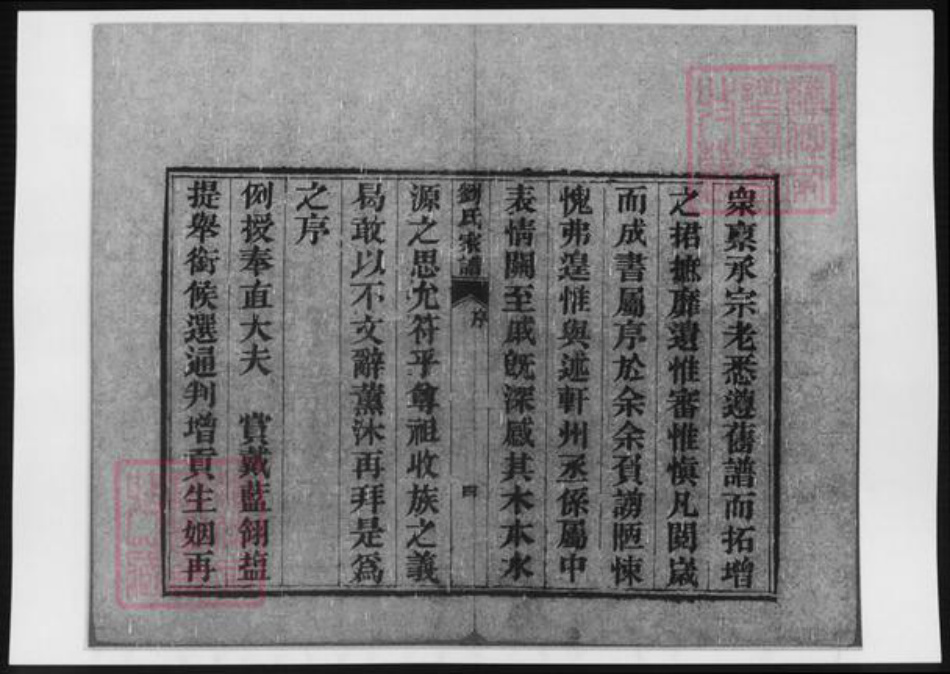 衆稟承宗老悉遵舊譜而拓增
之捃摭靡遺惟審惟愼凡閱歲
而成書屬序於余余頁謭陋悚
愧弗遑惟與述軒州丞係屬中
表情關至戚旣深感其木本水
劉氏家譜 序 四
源之思尤符乎尊祖收族之義
曷敢以不文辭薰沐再拜是爲
之序
例授奉直大夫 賞戴藍翎鹽
提舉銜候選通判增貢生姻再